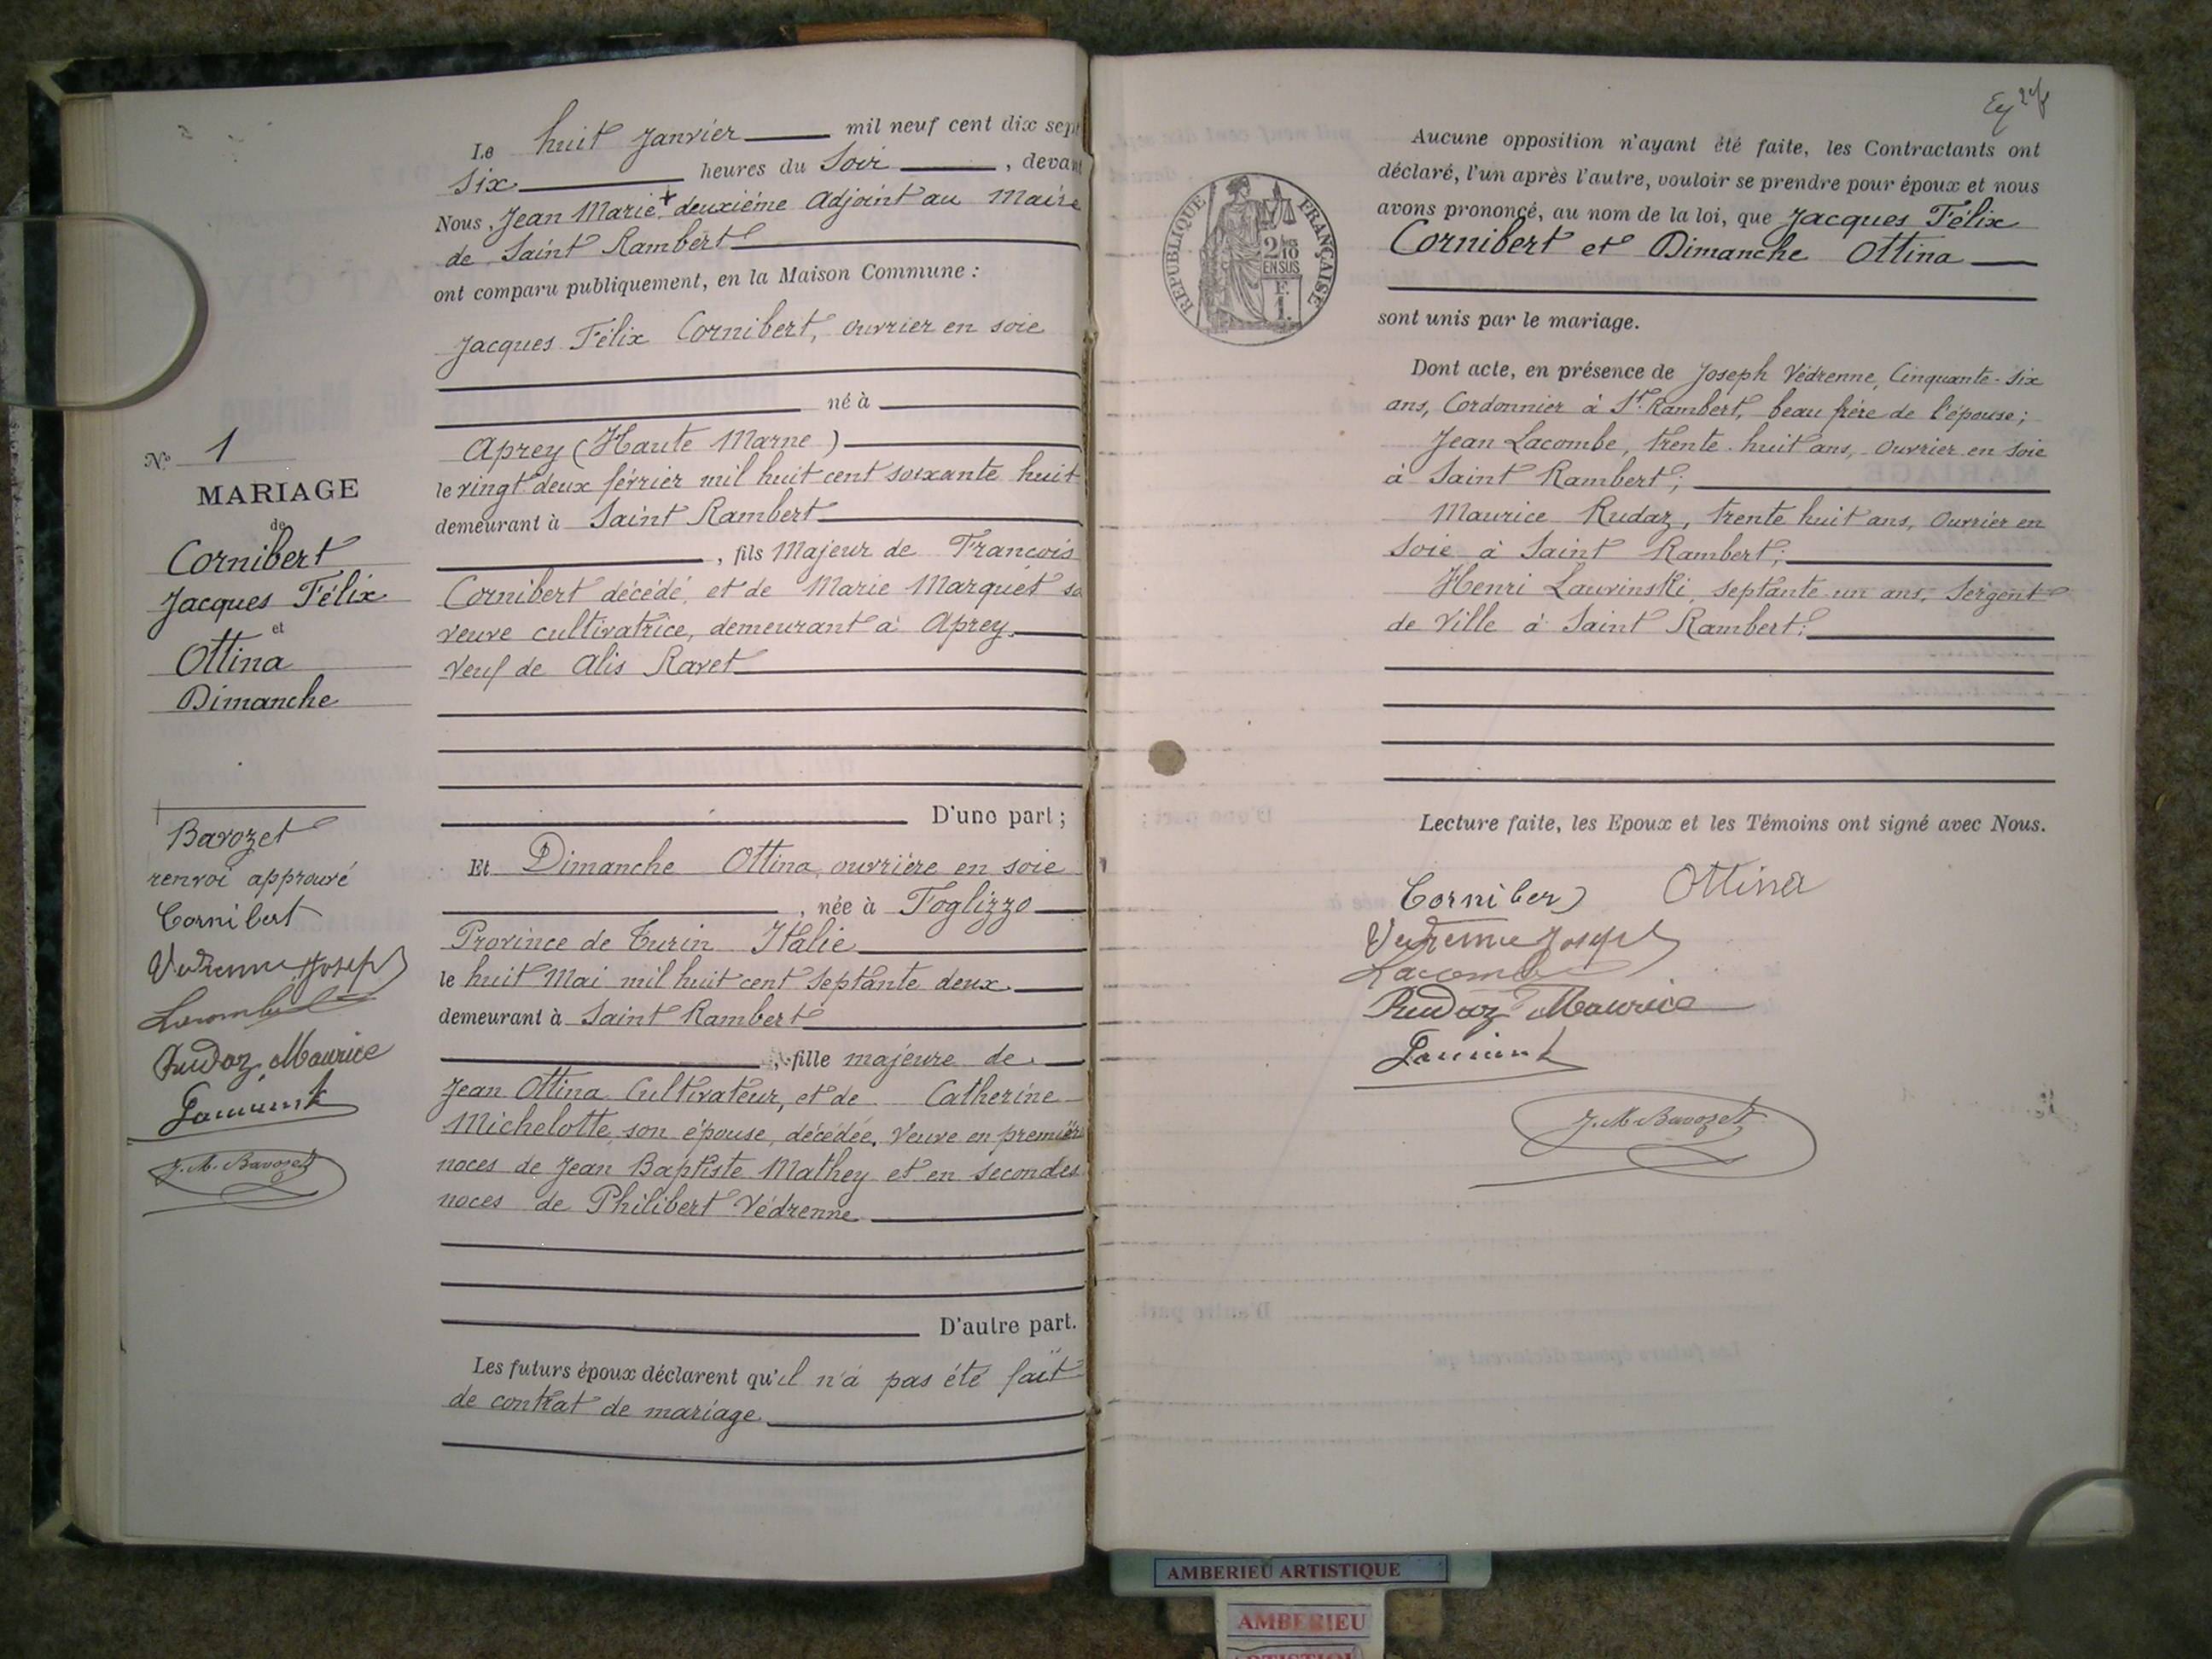 Nº 1
MARIAGE
de
Cornibert
Jacques Félix
et
Ottina
Dimanche
Bavozet
renvoi approuvé
Cornibert
Vedrenne Joseph
Lacombe
Rudaz Maurice
J. M. Bavozet
Le huit Janvier mil neuf cent dix sept
Six heures du Soir, devant
Nous, Jean Marie + deuxième Adjoint au Maire
de Saint Rambert
ont comparu publiquement, en la Maison Commune :
Jacques Félix Cornibert, ouvrier en soie
né à
Aprey (Haute Marne)
le vingt deux février mil huit cent soixante huit
demeurant à Saint Rambert
, fils Majeur de François
Cornibert décédé, et de Marie Marquet sa
veuve cultivatrice, demeurant à Aprey.
Veuf de Alis Ravet
D'une part ;
Et Dimanche Ottina, ouvrière en soie
, née à Foglizzo
Province de Turin Italie
le huit Mai mil huit cent Septante deux.
demeurant à Saint Rambert
, fille majeure de
Jean Ottina Cultivateur, et de Catherine
Michelotte, son épouse, décédée, Veuve en première
noces de Jean Baptiste Mathey et en secondes
noces de Philibert Védrenne
D'autre part.
Les futurs époux déclarent qu'il n'a pas été fait
de contrat de mariage.
RÉPUBLIQUE FRANÇAISE
2/10
EN SUS
F.
1.
Aucune opposition n'ayant été faite, les Contractants ont
déclaré, l'un après l'autre, vouloir se prendre pour époux et nous
avons prononcé, au nom de la loi, que Jacques Félix
Cornibert et Dimanche Ottina
sont unis par le mariage.
Dont acte, en présence de Joseph Védrenne, Cinquante-Six
ans, Cordonnier à St Rambert, beau frère de l'épouse ;
Jean Lacombe, trente-huit ans, ouvrier en soie
à Saint Rambert ;
Maurice Rudaz, trente huit ans, Ouvrier en
Soie à Saint Rambert ;
Henri Lauvinski, septante un ans, Sergent
de Ville à Saint Rambert.
Lecture faite, les Epoux et les Témoins ont signé avec Nous.
Cornibert Ottina
Vedrenne Joseph
Lacombe
Rudaz Maurice
J. M. Bavozet
AMBERIEU ARTISTIQUE
AMBERIEU